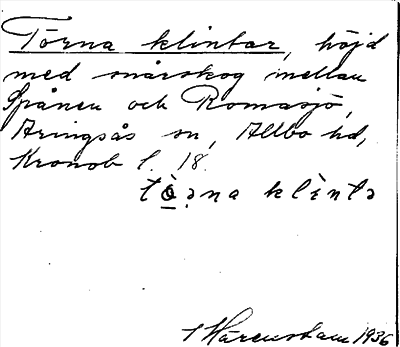 Törna klintar, höjd
med snårskog mellan
Spånen och Romasjö,
Aringsås sn, Allbo hd,
Kronob l. 18.
tò̱ɔna klèntɔ
1 Härenstam 1936